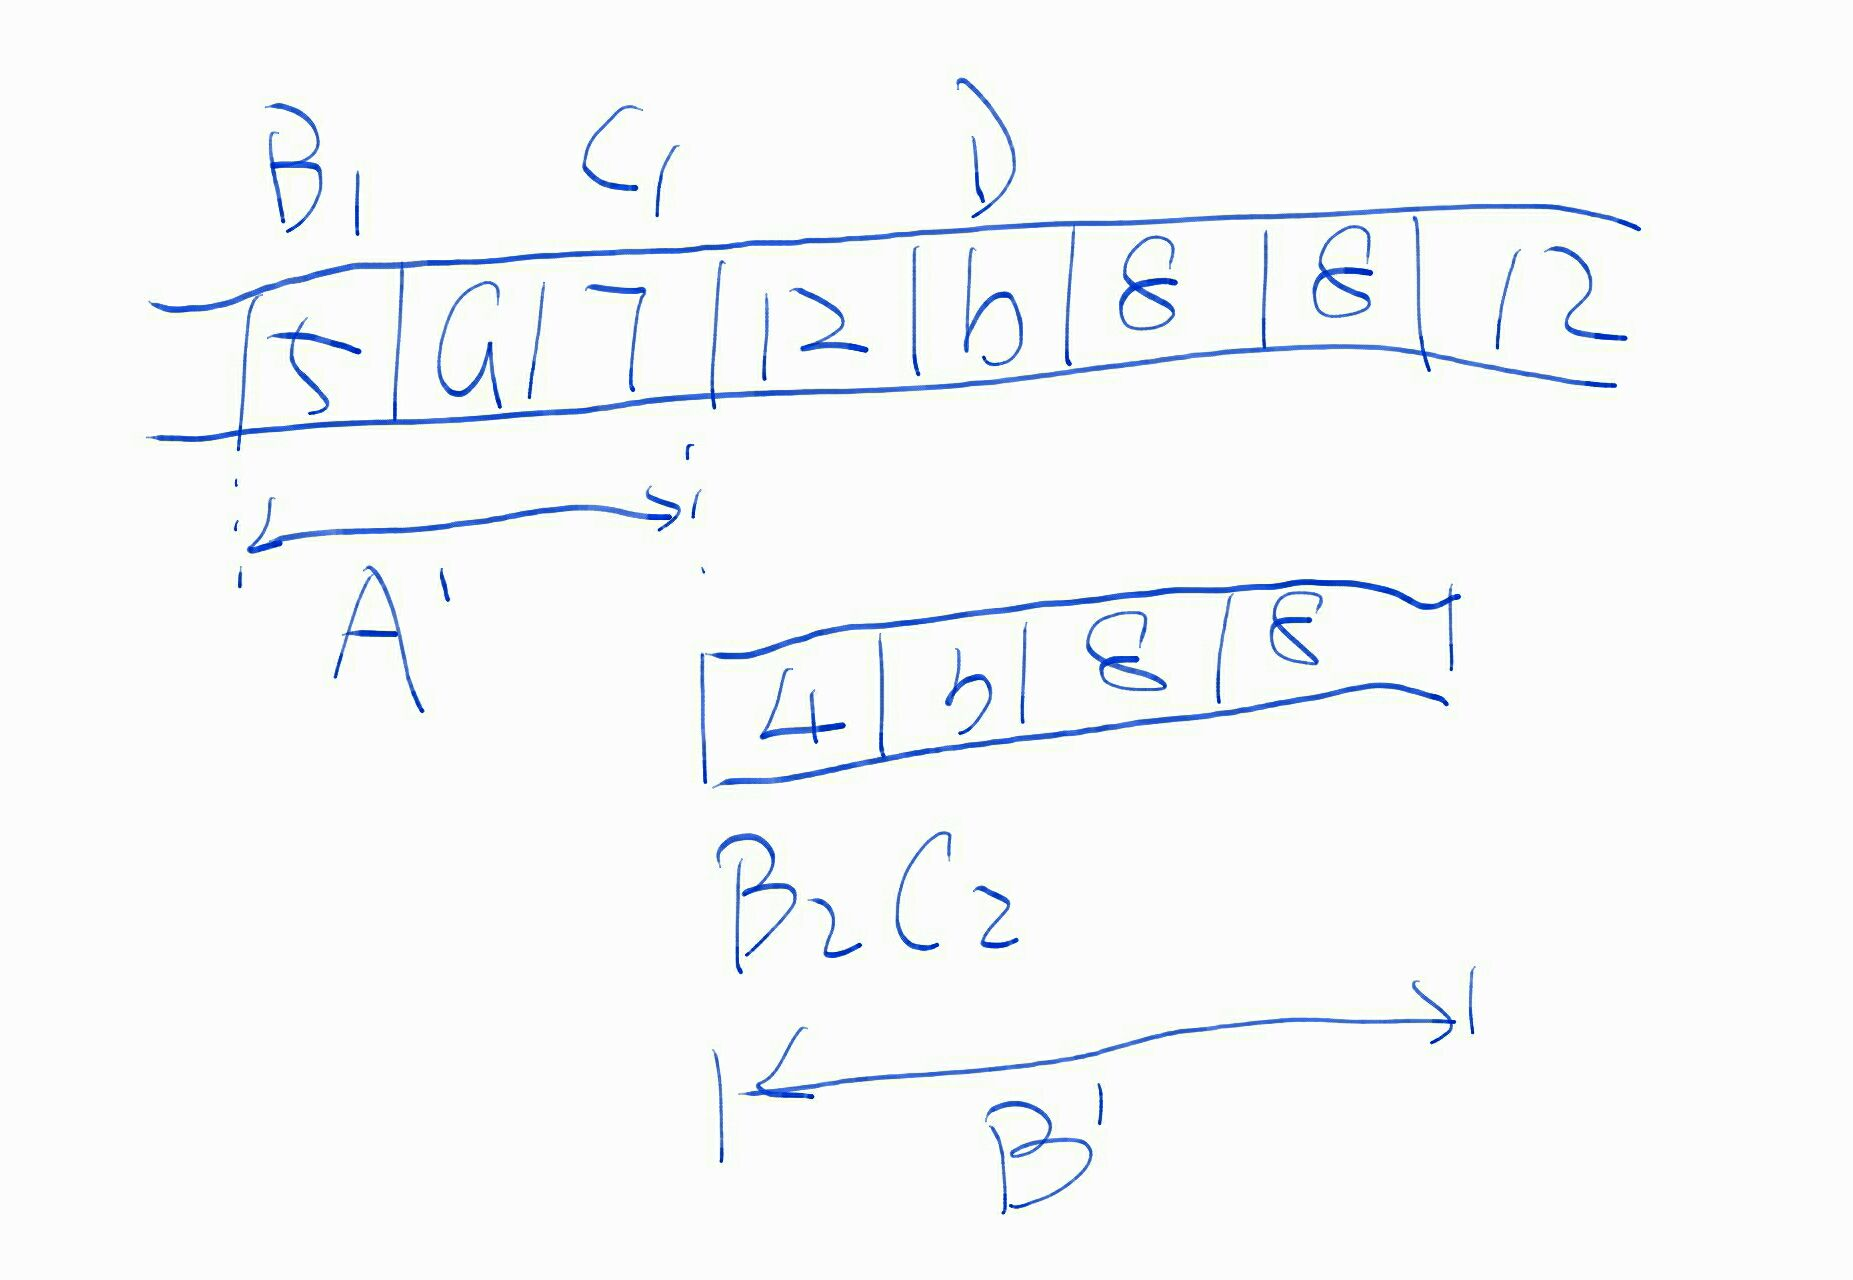 B₁ C₁ D
5 a 7 12 b 8 8 12
A'
4 b 8 8
B₂ C₂
B'